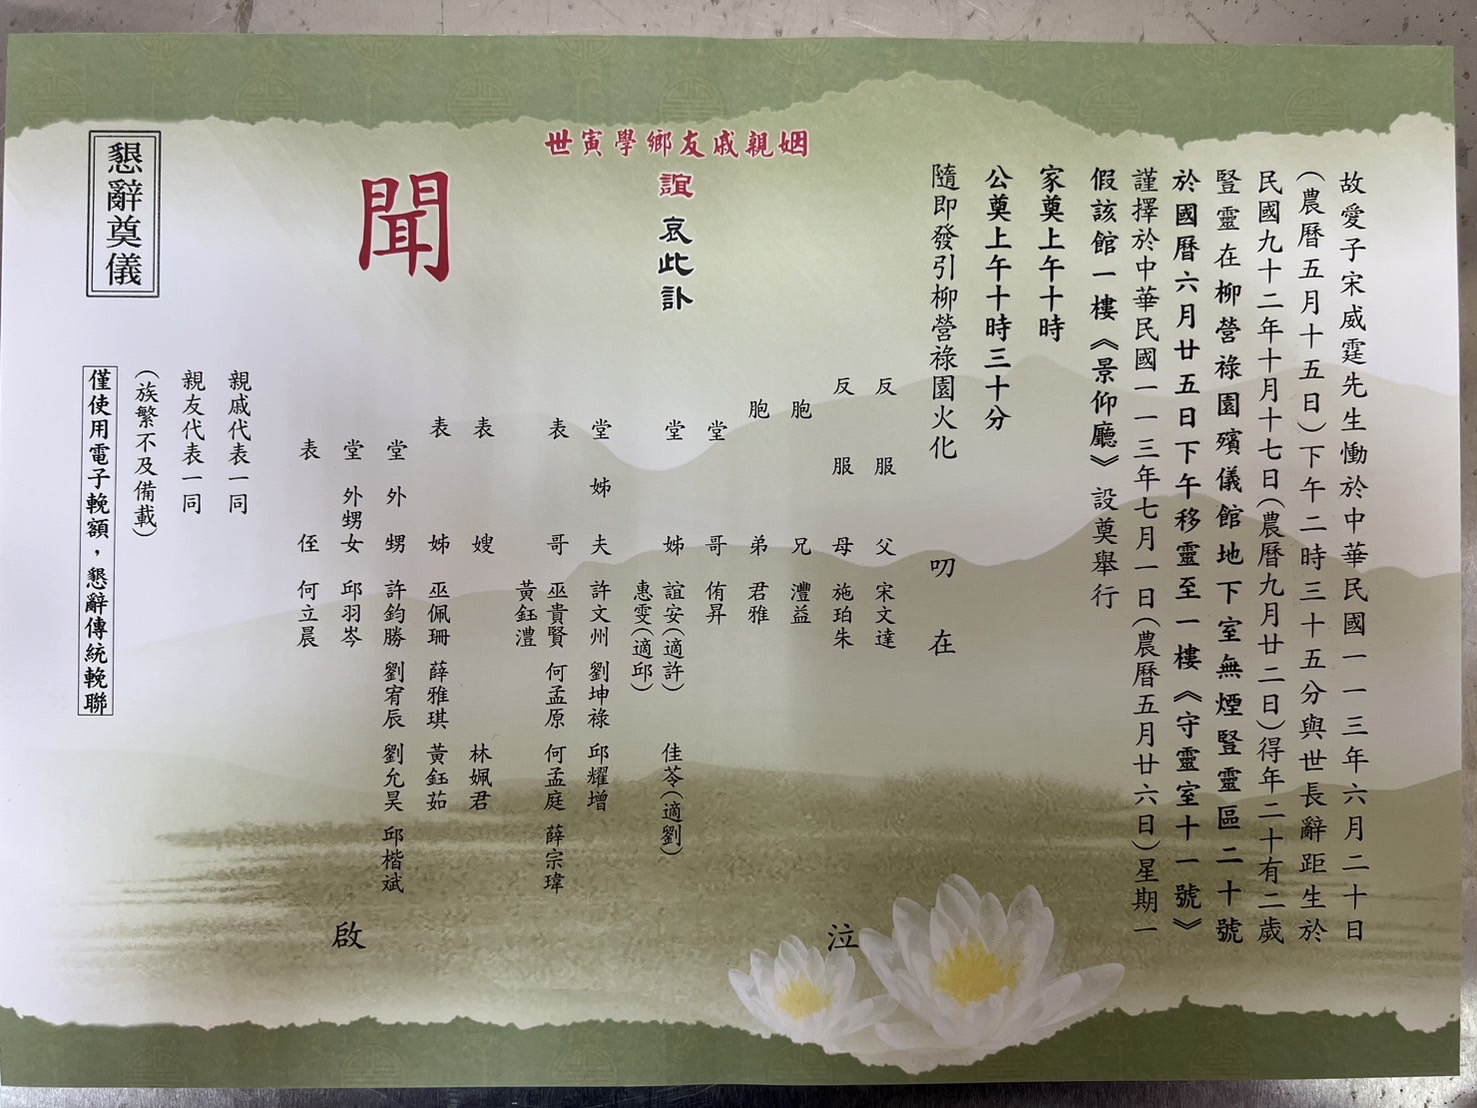 故愛子宋威霆先生慟於中華民國一一三年六月二十日
(農曆五月十五日)下午二時三十五分與世長辭距生於
民國九十二年十月十七日(農曆九月廿二日)得年二十有二歲
豎靈在柳營祿園殯儀館地下室無煙豎靈區二十號
於國曆六月廿五日下午移靈至一樓《守靈室十一號》
謹擇於中華民國一一三年七月一日(農曆五月廿六日)星期一
假該館一樓《景仰廳》設奠舉行
家奠上午十時
公奠上午十時三十分
隨即發引柳營祿園火化
叨在
姻親戚友鄉學寅世
誼 哀此訃
聞
反服父 宋文達
反服母 施珀朱
胞兄 灃益
胞弟 君雅
堂哥 侑昇
堂姊 誼安(適許) 佳苓(適劉)
惠雯(適邱)
堂姊夫 許文州 劉坤祿 邱耀增
表哥 巫貴賢 何孟原 何孟庭 薛宗瑋
黃鈺澧
表嫂 林姵君
表姊 巫佩珊 薛雅琪 黃鈺茹
堂外甥 許鈞勝 劉宥辰 劉允昊 邱楷斌
堂外甥女 邱羽岑
表侄 何立晨
泣
啟
親戚代表一同
親友代表一同
(族繁不及備載)
懇辭奠儀
僅使用電子輓額，懇辭傳統輓聯